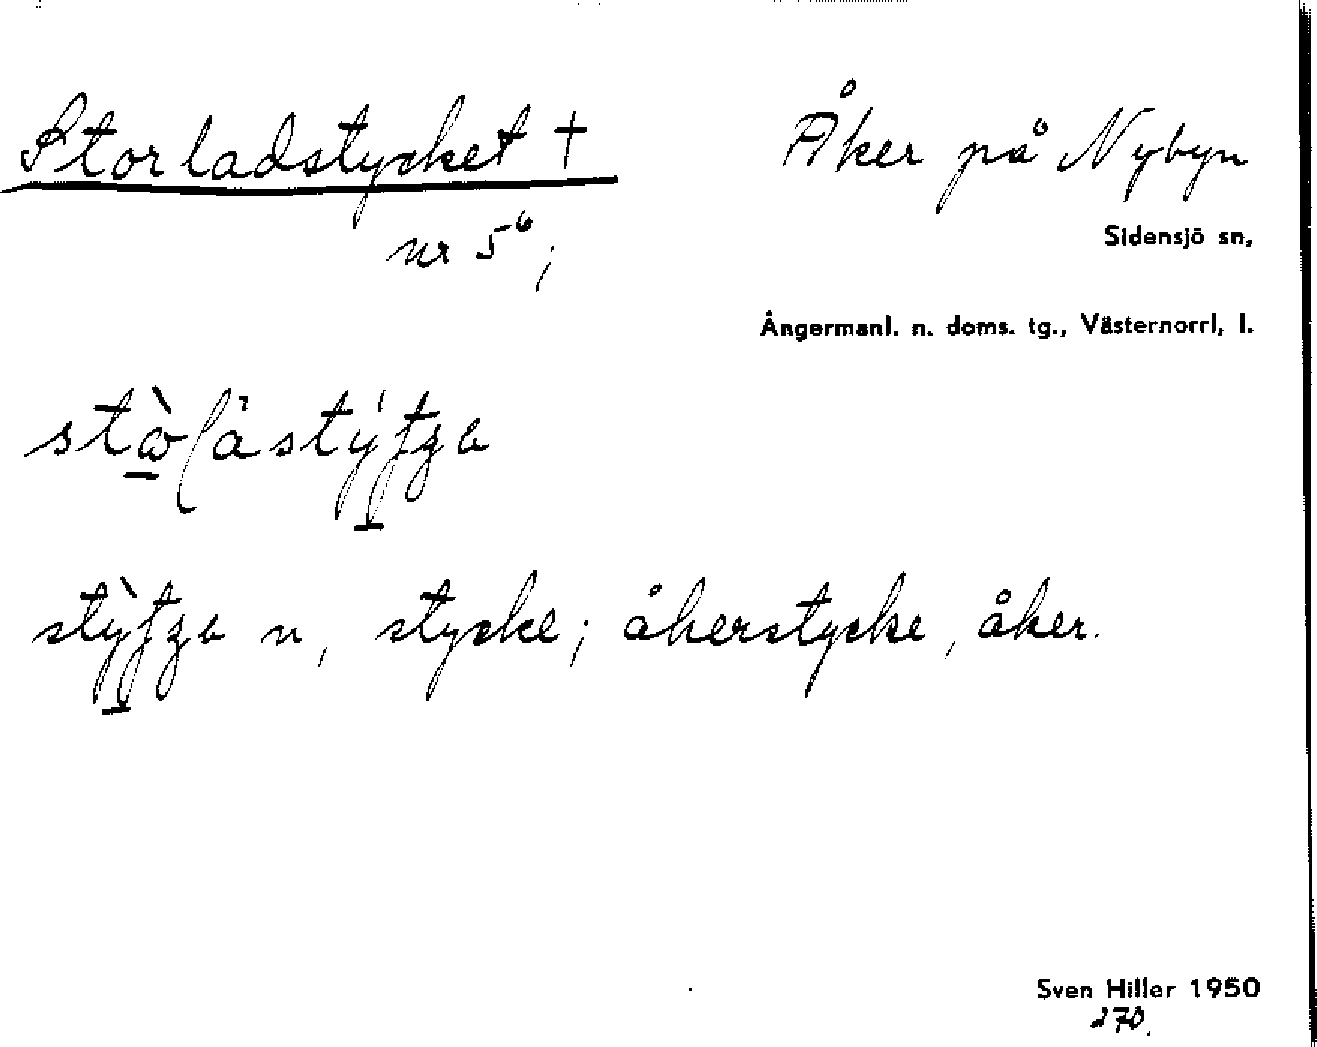 Storladstycket +
Åker på Nybyn
nr 5⁶;
Sidensjö sn,
Ångermanl. n. doms. tg., Västernorrl, l.
n, stycke; åkerstycke, åker.
Sven Hiller 1950
270.